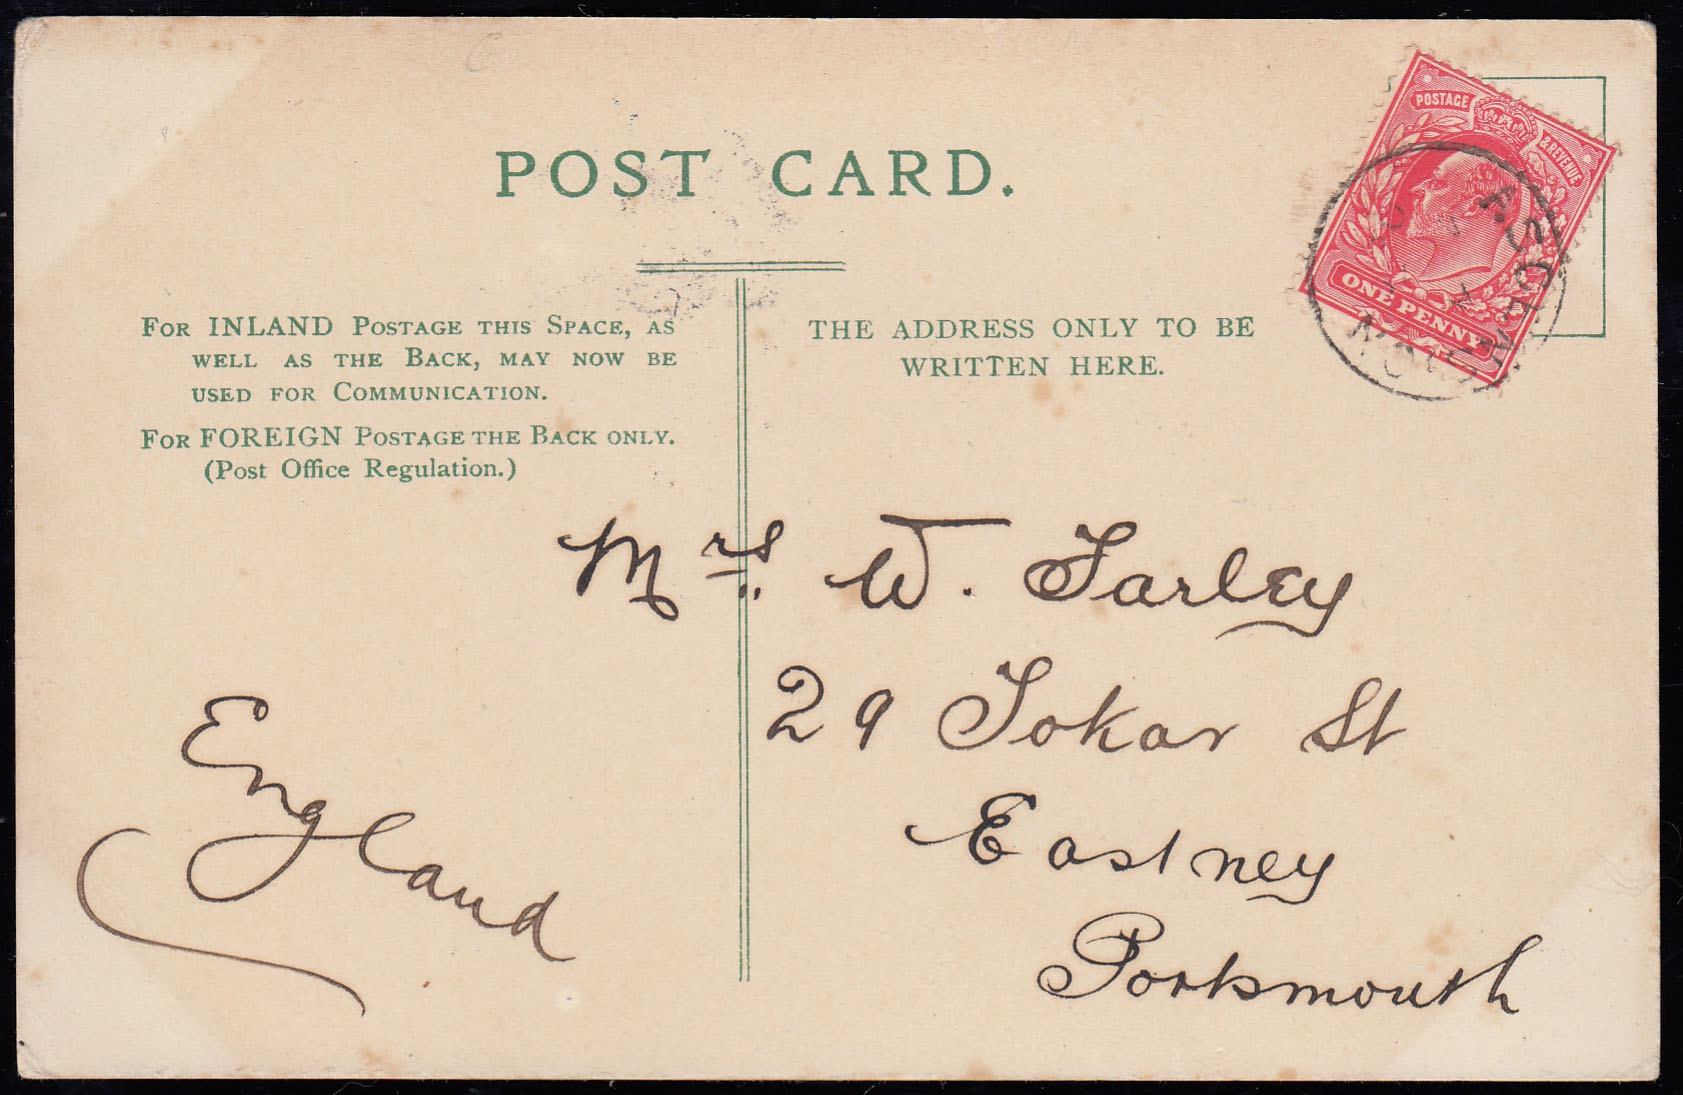 POST CARD.
FOR INLAND POSTAGE THIS SPACE, AS
WELL AS THE BACK, MAY NOW BE
USED FOR COMMUNICATION.
FOR FOREIGN POSTAGE THE BACK ONLY.
(Post Office Regulation.)
THE ADDRESS ONLY TO BE
WRITTEN HERE.
POSTAGE
& REVENUE
ONE PENNY
Mrs. W. Farley
29 Tokar St
Eastney
Portsmouth
England